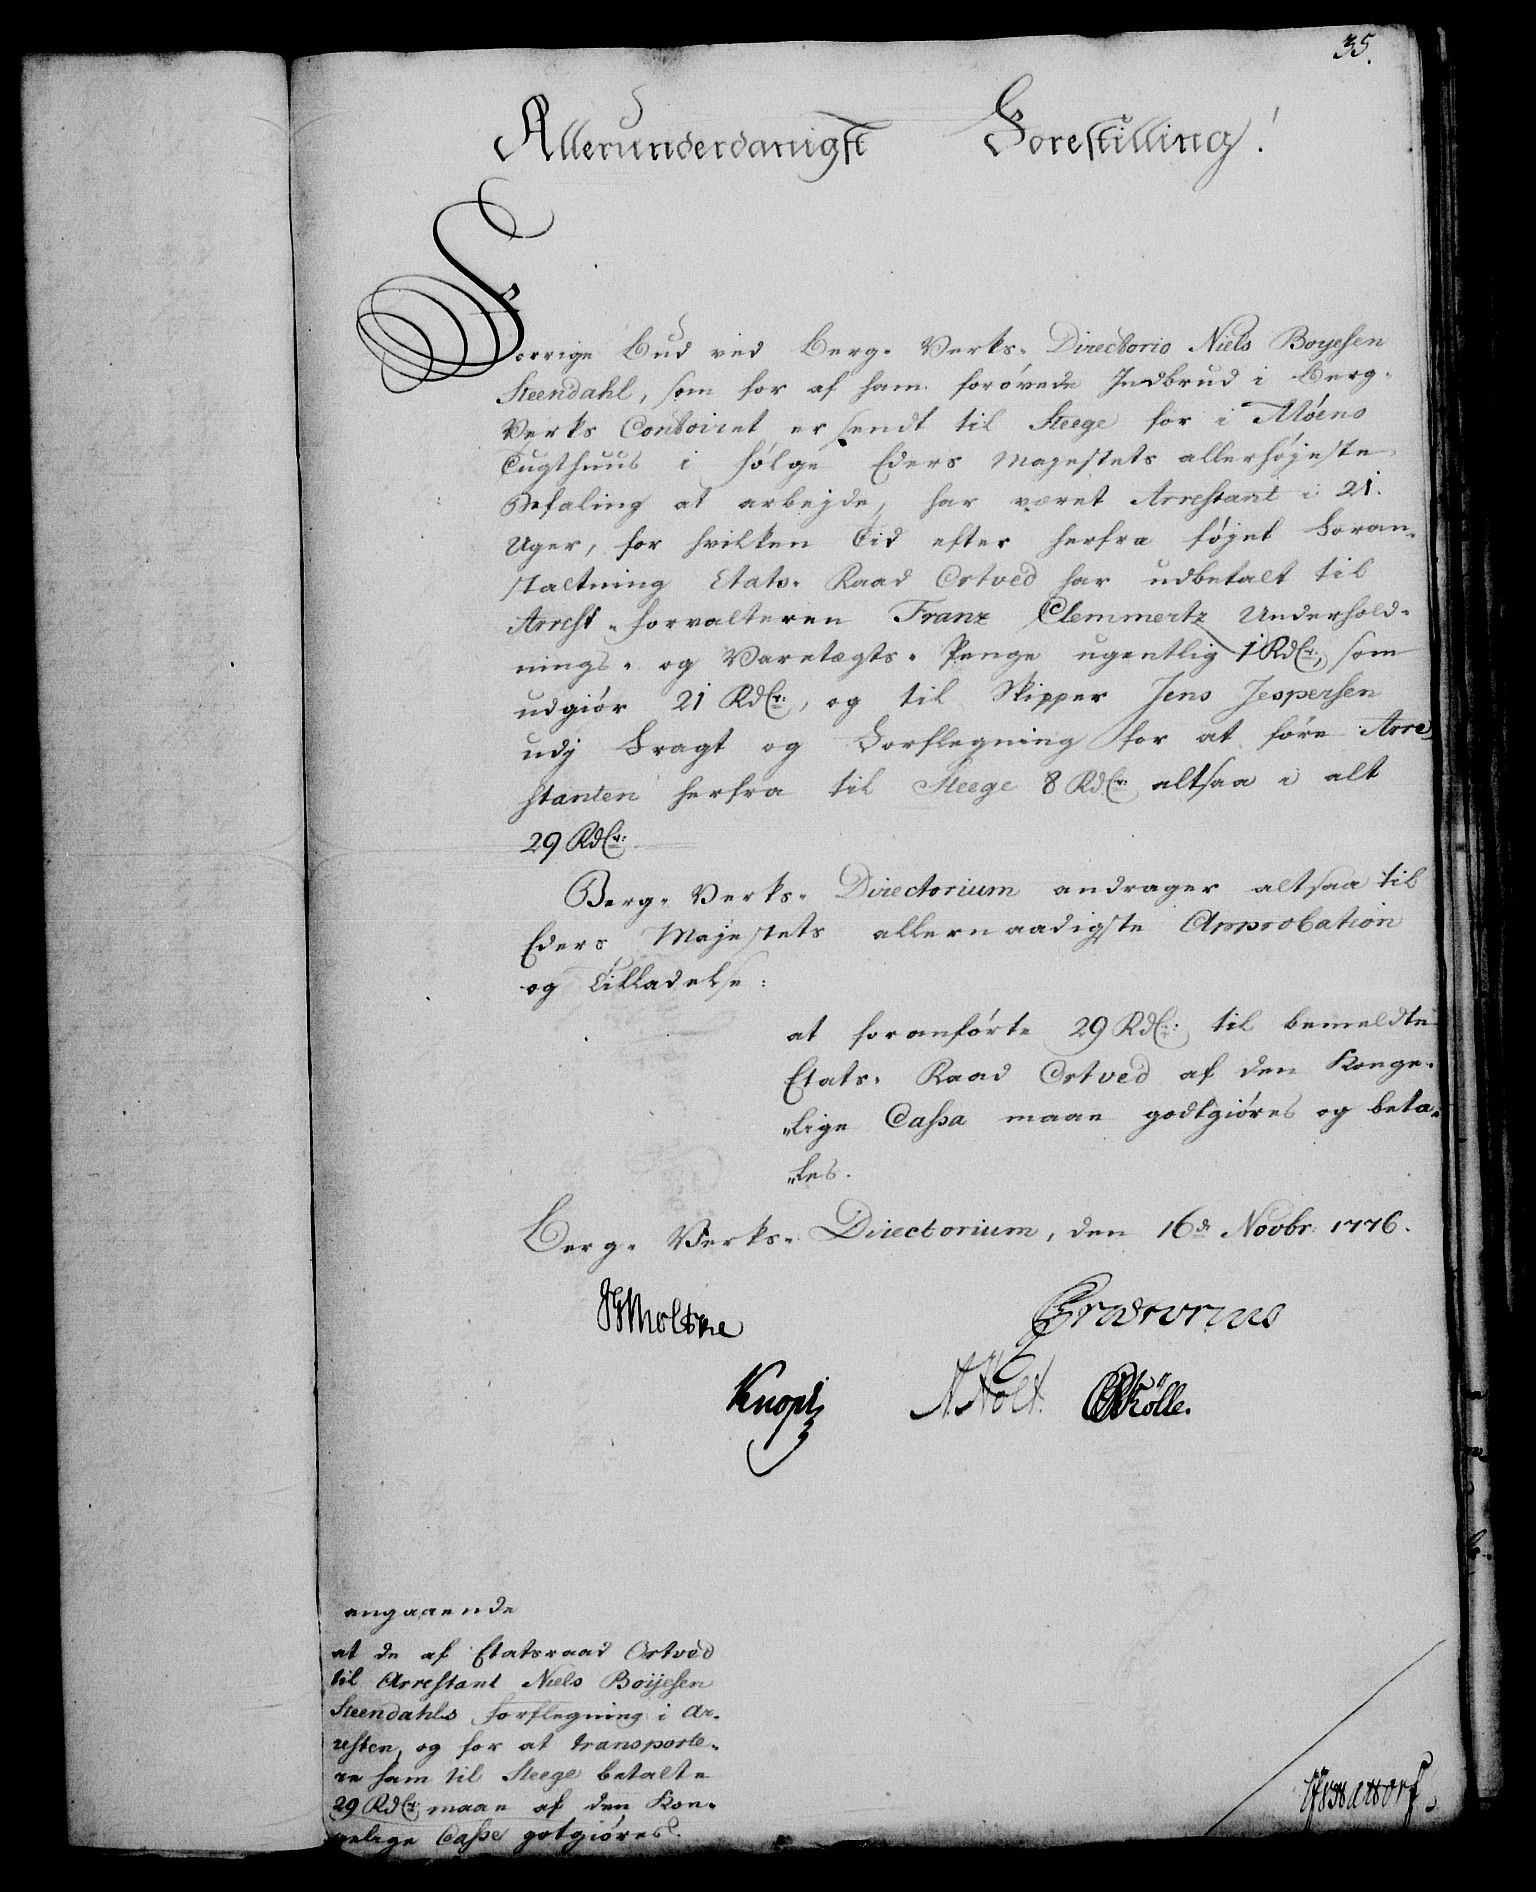 35.
Allerunderdanigst Forestilling!
Forrige Bud ved Berg-Verks-Directorio Niels Boyesen
Steendahl, som for af ham forøvede Indbrud i Berg-
Verks Contoiret er sendt til Steege for i Møens
Tugthuus i følge Eders Majestets allerhøjeste
Befaling at arbejde, har været Arrestant i 21.
Uger, for hvilken Tid efter herfra føjet Foran-
staltning Etats-Raad Ortved har udbetalt til
Arrest-forvalteren Franz Clemmertz Underhold-
nings- og Varetægts-Penge ugentlig 1 Rdlr:, som
udgiør 21 Rdlr:, og til Skipper Jens Jespersen
udj Fragt og Forflegning for at føre Arre-
stanten herfra til Steege 8 Rdlr: altsaa i alt
29 Rdlr:
Berg-Verks-Directorium andrager altsaa til
Eders Majestets allernaadigste Approbation
og Tilladelse:
at foranførte 29 Rdlr: til bemeldte
Etats-Raad Ortved af den Konge-
"lige Cassa maae godtgiøres og beta-
"les.
Berg-Verks-Directorium, den 16de Novbr: 1776.
Moltke
Knopf
N. Holt. Kölle.
angaaende
at de af Etatsraad Ortved
til Arrestant Niels Boijesen
Steendahls forflegning i Ar-
resten, og for at transporte-
re ham til Steege betalte
29 Rdlr: maae af den Kon-
gelige Casse gotgiøres.